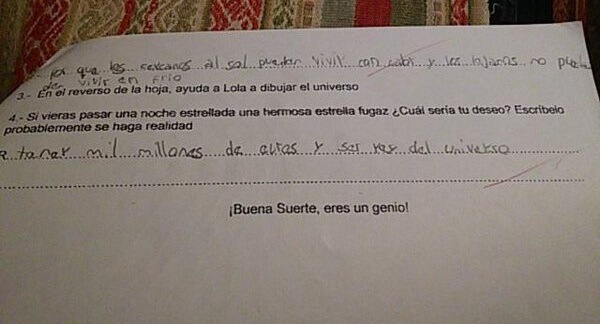 por que los cercanos al sol puedan vivir con calor y los lejanos no
vivir en frio
3.- En el reverso de la hoja, ayuda a Lola a dibujar el universo
4.- Si vieras pasar una noche estrellada una hermosa estrella fugaz ¿Cuál sería tu deseo? Escribelo
probablemente se haga realidad
tener mil millones de euros y ser rey del universo
¡Buena Suerte, eres un genio!